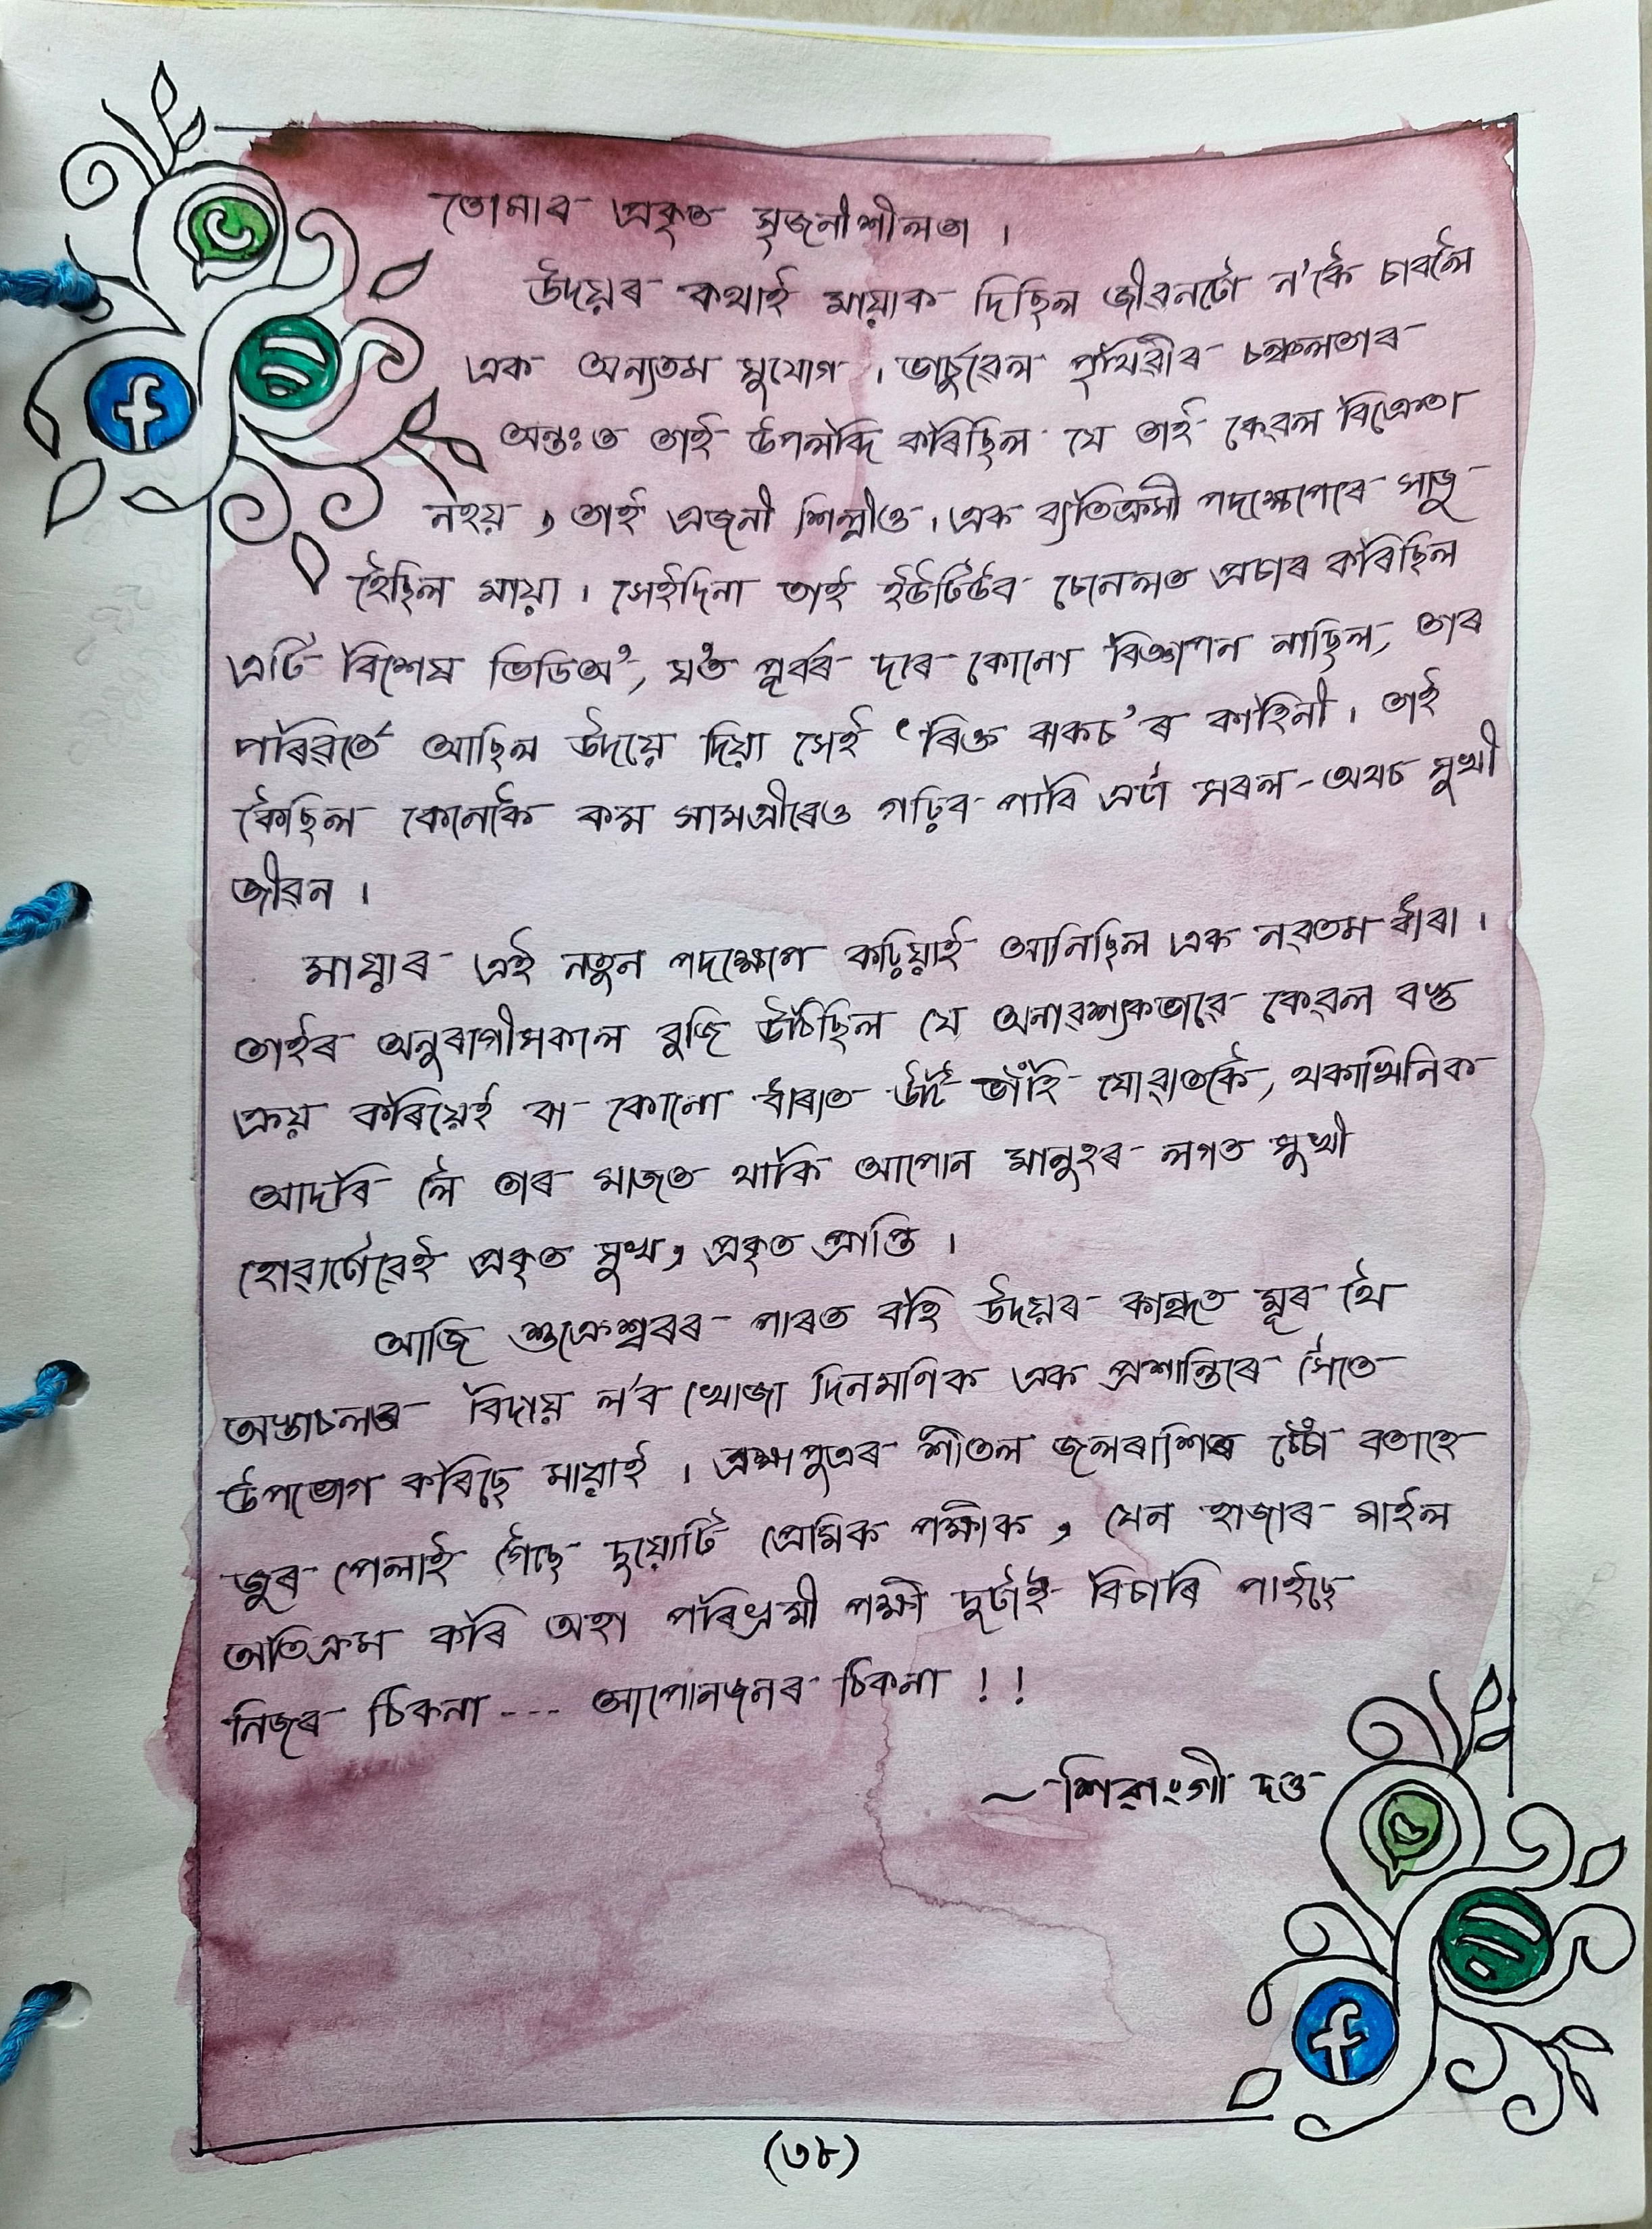 তোমাৰ প্ৰকৃত সৃজনীশীলতা ।
উদয়ৰ কথাই মায়াক দিছিল জীৱনটো ন'কৈ চাবলৈ
এক অন্যতম সুযোগ । ভাৰ্চুৱেল পৃথিৱীৰ চঞ্চলতাৰ
অন্তঃত তাই উপলব্দি কৰিছিল যে তাই কেৱল বিক্ৰেতা
নহয় , তাই এজনী শিল্পীও । এক ব্যতিক্ৰমী পদক্ষেপেৰে সাজু
হৈছিল মায়া । সেইদিনা তাই ইউটিউব চেনেলত প্ৰচাৰ কৰিছিল
এটি বিশেষ ভিডিঅ', য'ত পূৰ্বৰ দৰে কোনো বিজ্ঞাপন নাছিল, তাৰ
পৰিৱৰ্তে আছিল উদয়ে দিয়া সেই ‘ৰিক্ত বাকচ’ৰ কাহিনী । তাই
কৈছিল কেনেকৈ কম সামগ্ৰীৰেও গঢ়িব পাৰি এটা সৰল-অথচ সুখী
জীৱন ।
মায়াৰ এই নতুন পদক্ষেপে কঢ়িয়াই আনিছিল এক নৱতম ধাৰা ।
তাইৰ অনুৰাগীসকলে বুজি উঠিছিল যে অনাৱশ্যকভাৱে কেৱল বস্তু
ক্ৰয় কৰিয়েই বা কোনো ধাৰাত উটি ভাঁহি যোৱাতকৈ, থকাখিনিক
আদৰি লৈ তাৰ মাজত থাকি আপোন মানুহৰ লগত সুখী
হোৱাটোৱেই প্ৰকৃত সুখ, প্ৰকৃত প্ৰাপ্তি ।
আজি শুক্ৰেশ্বৰৰ পাৰত বহি উদয়ৰ কান্ধত মূৰ থৈ
অস্তাচলৰ বিদায় ল'ব খোজা দিনমণিক এক প্ৰশান্তিৰে সৈতে
উপভোগ কৰিছে মায়াই । ব্ৰহ্মপুত্ৰৰ শীতল জলৰাশিৰ চেঁচা বতাহে
জুৰ পেলাই গৈছে দুয়োটি প্ৰেমিক পক্ষীক , যেন হাজাৰ মাইল
অতিক্ৰম কৰি অহা পৰিভ্ৰমী পক্ষী দুটাই বিচাৰি পাইছে
নিজৰ ঠিকনা --- আপোনজনৰ ঠিকনা ! !
~ শিৱাংগী দত্ত
(৩৮)